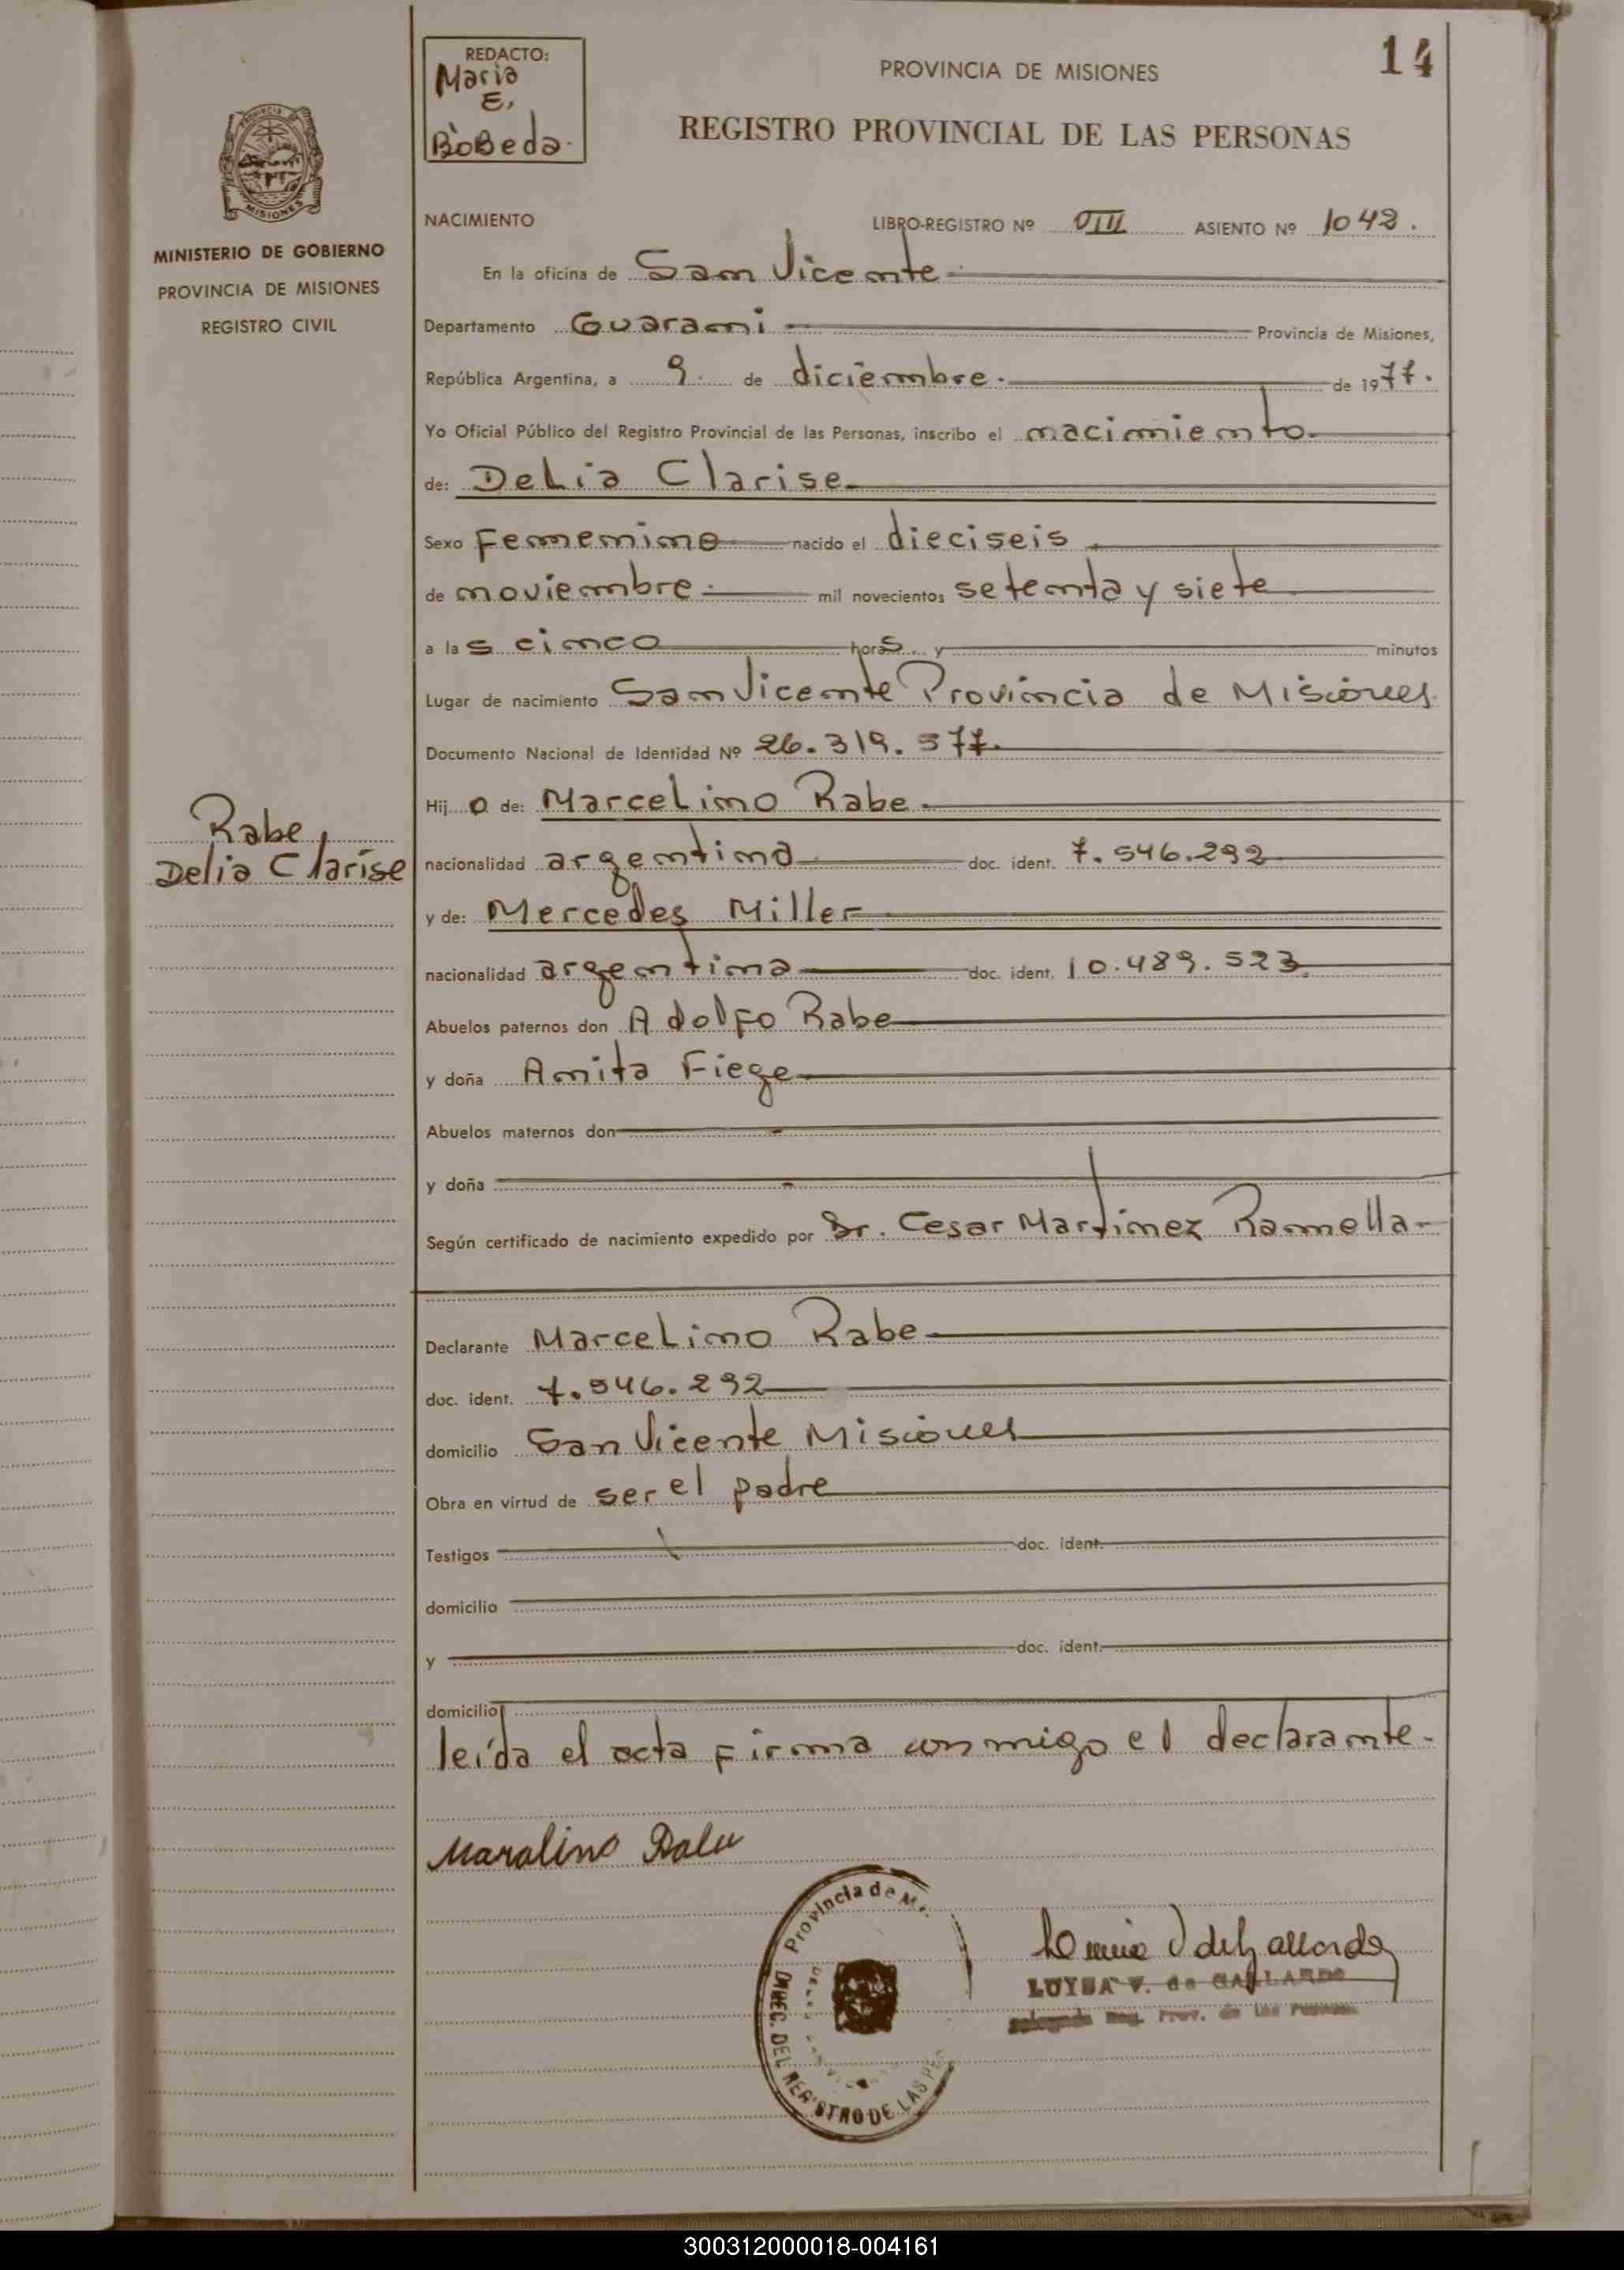 14
REDACTO:
Maria
E.
BòBeda.
PROVINCIA DE MISIONES
REGISTRO PROVINCIAL DE LAS PERSONAS
MISIONES
MINISTERIO DE GOBIERNO
PROVINCIA DE MISIONES
REGISTRO CIVIL
NACIMIENTO LIBRO-REGISTRO Nº VIII ASIENTO Nº 1042.
En la oficina de San Vicente
Departamento Guarani Provincia de Misiones,
República Argentina, a 9 de diciembre. de 1977.
Yo Oficial Público del Registro Provincial de las Personas, inscribo el nacimiento
de: Delia Clarise
Sexo Femenino nacido el dieciseis
de noviembre mil novecientos setenta y siete
a las cinco horas y minutos
Lugar de nacimiento San Vicente Provincia de Misiones
Documento Nacional de Identidad Nº 26.319.577.
Hijo de: Marcelino Rabe
Rabe,
Delia Clarise
nacionalidad argentina doc. ident. 7.546.292
y de: Mercedes Miller
nacionalidad argentina doc. ident. 10.489.523.
Abuelos paternos don Adolfo Rabe
y doña Anita Fiege
Abuelos maternos don
y doña
Según certificado de nacimiento expedido por Dr. Cesar Martinez Ramella-
Declarante Marcelino Rabe
doc. ident. 7.546.292
domicilio San Vicente Misiones
Obra en virtud de ser el padre
Testigos doc. ident.
domicilio
y doc. ident.
domicilio
leída el acta firma conmigo el declarante.
Marcelino Rabe
Provincia de Mi
DIREC. DEL REGISTRO DE LAS PER
LUISA V. de GALLARDO
Delegada Reg. Prov. de las Personas
300312000018-004161